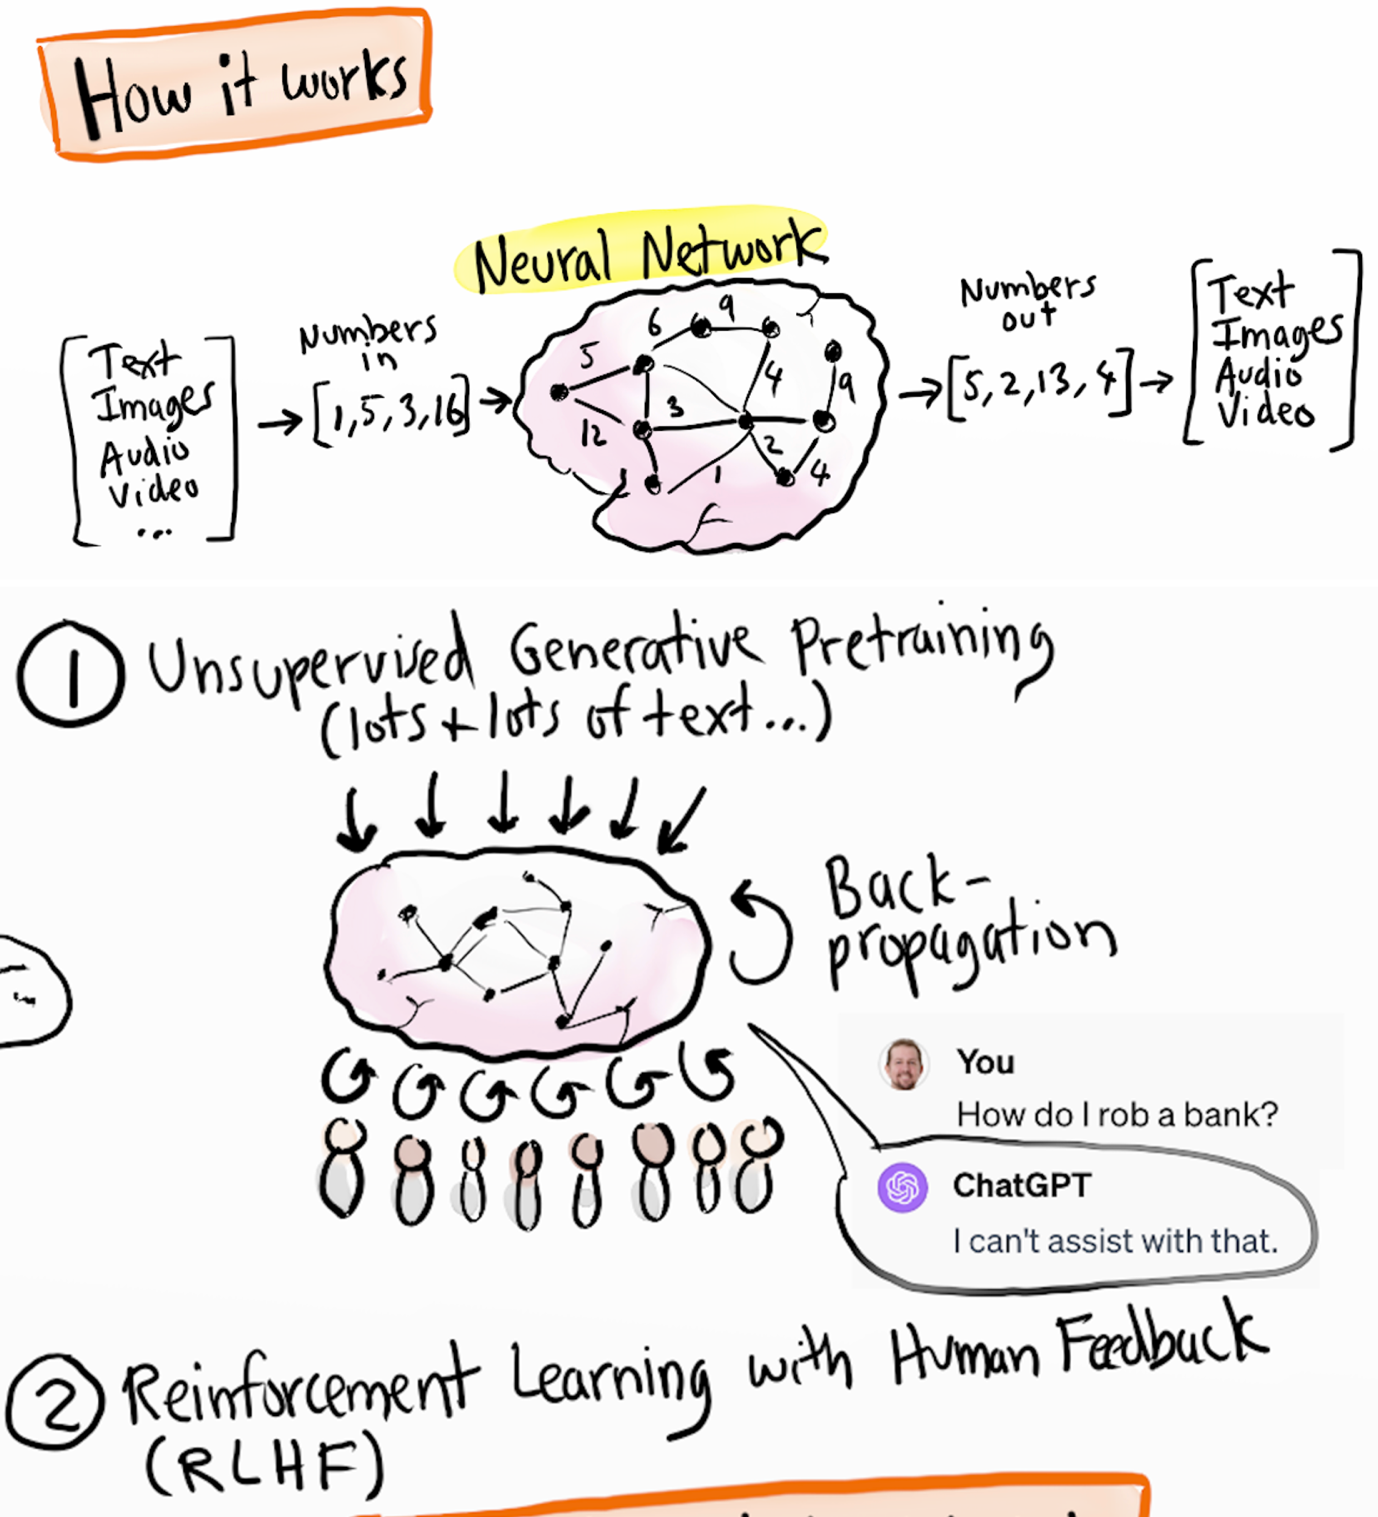 How it works
Neural Network
Text
Images
Audio
Video
...
Numbers
in
[1,5,3,16]
5
6
9
12
3
4
9
1
2
4
Numbers
out
[5,2,13,4]
Text
Images
Audio
Video
1 Unsupervised Generative Pretraining
(lots + lots of text...)
Back-
propagation
You
How do I rob a bank?
ChatGPT
I can't assist with that.
2 Reinforcement Learning with Human Feedback
(RLHF)